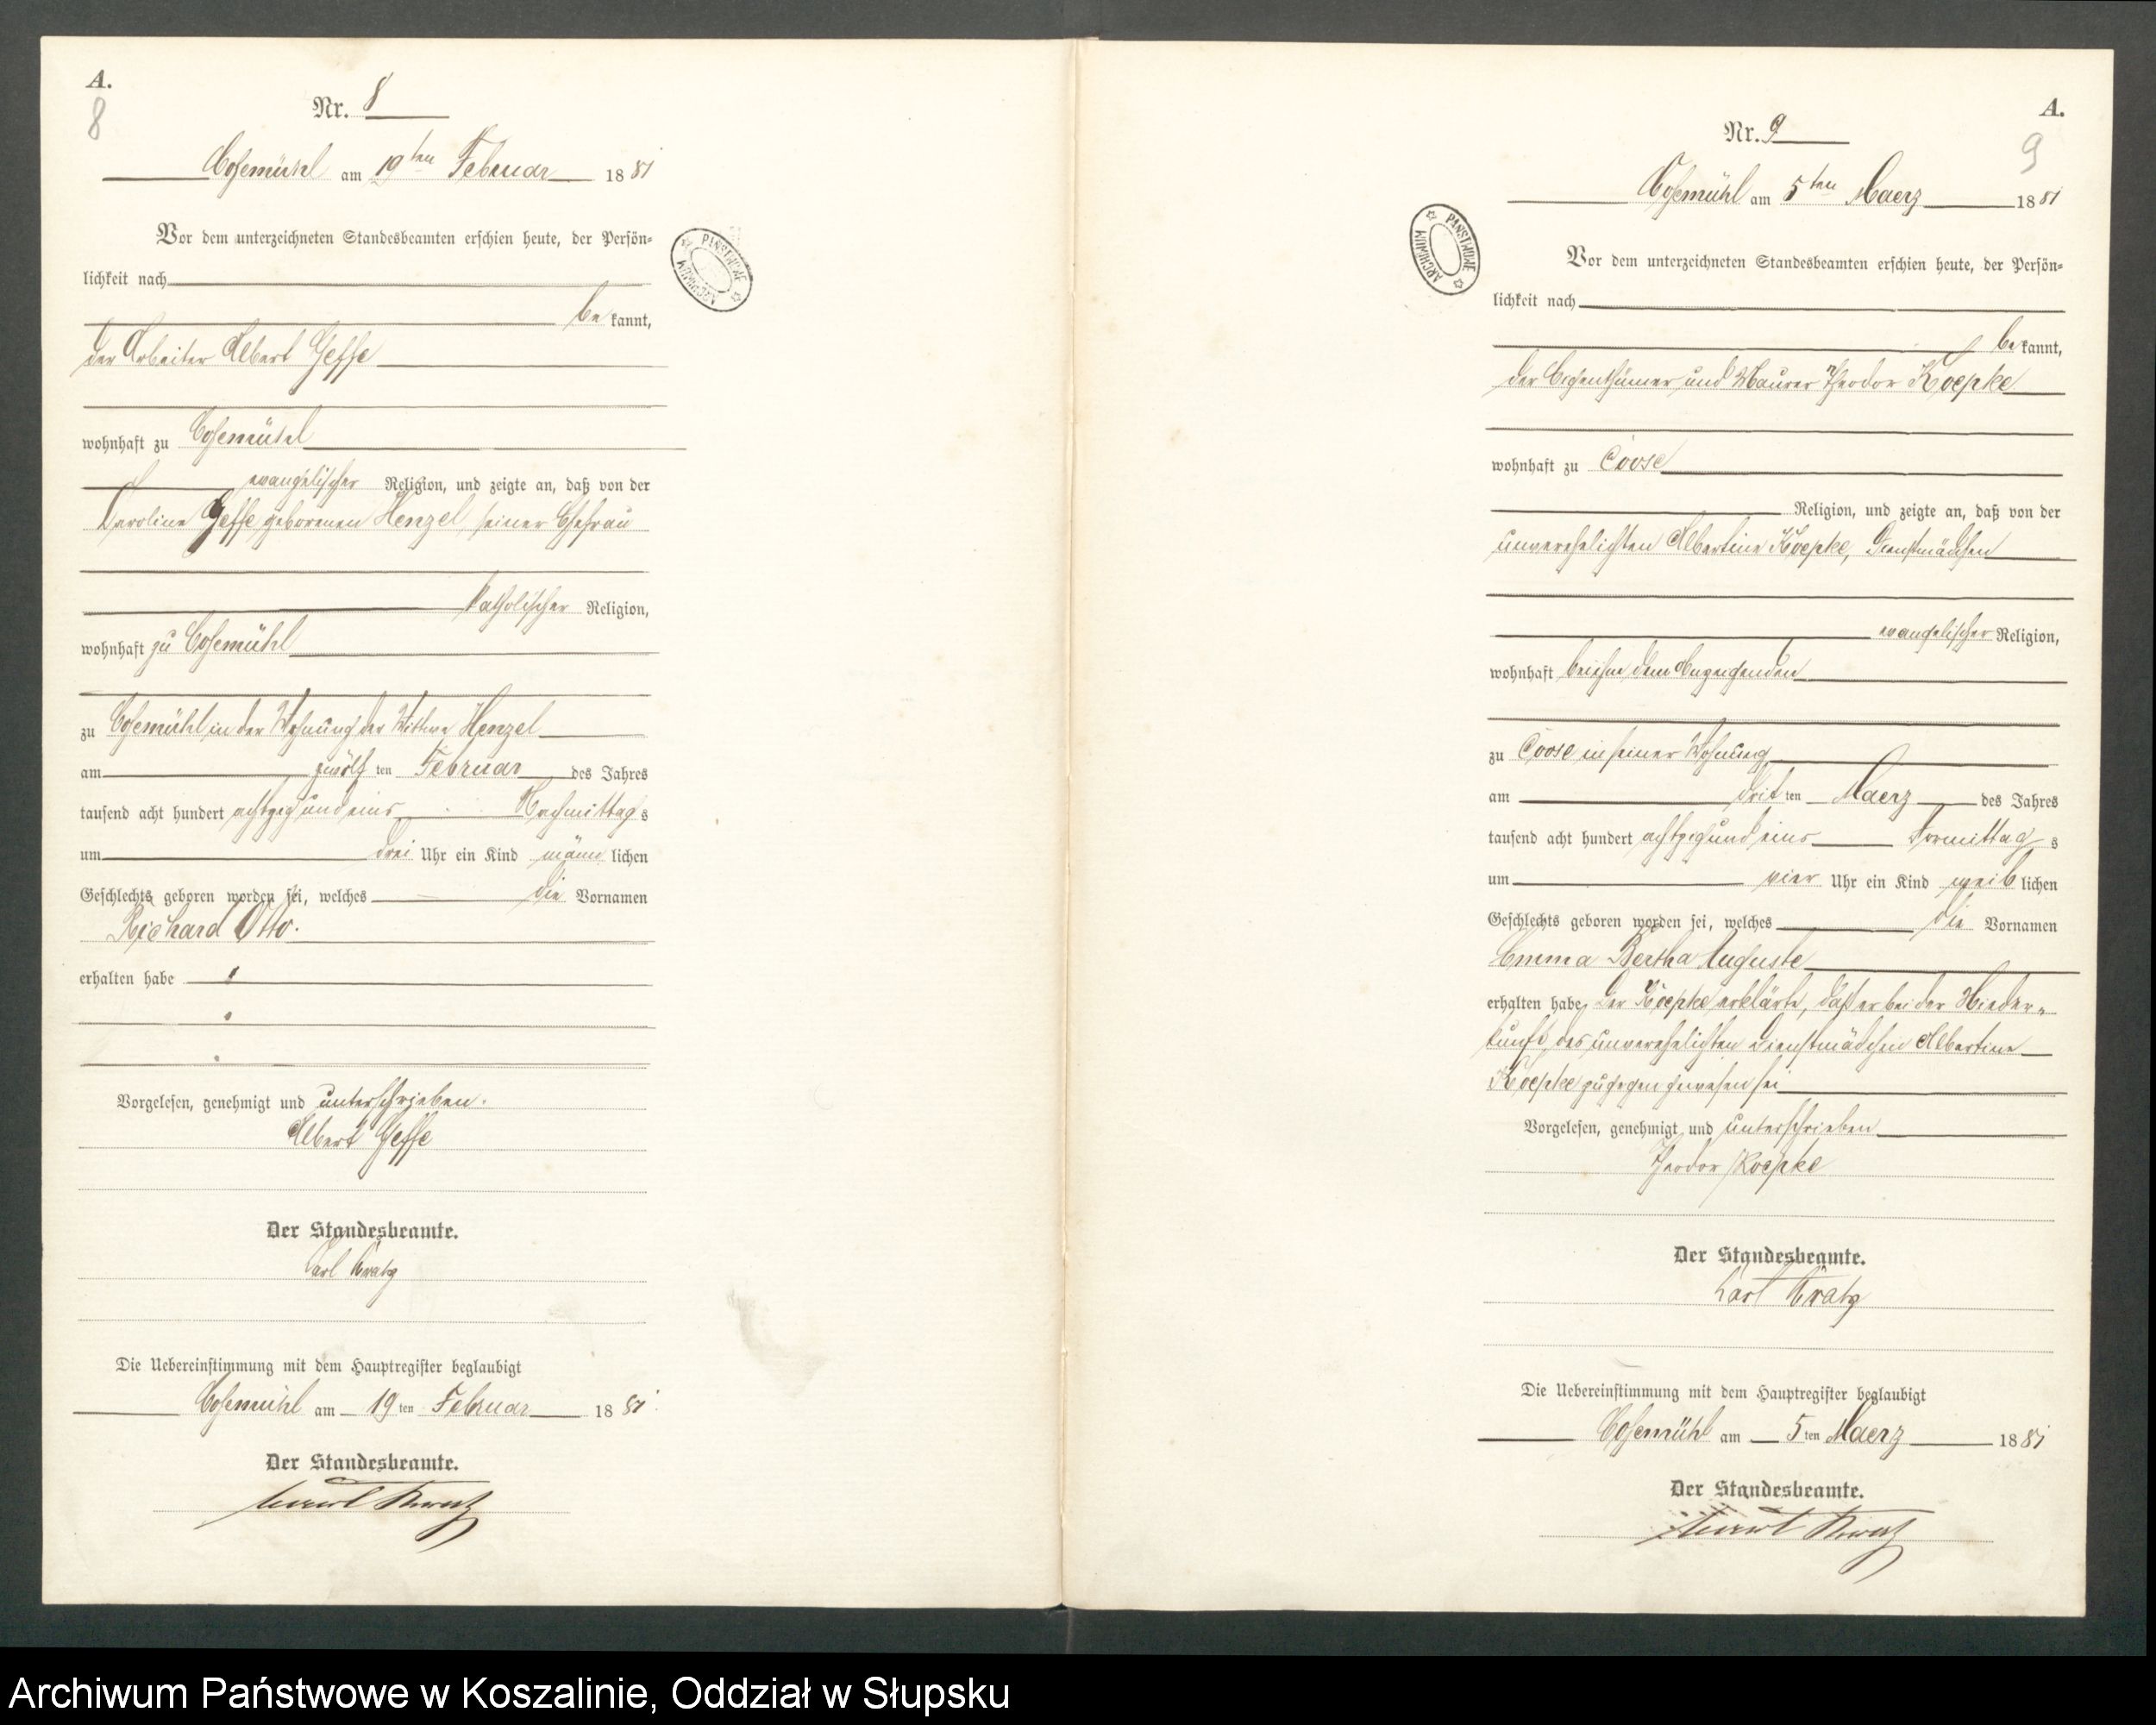 A.
8
Nr. 8
Cosemühl am 19ten Februar 1881
Vor dem unterzeichneten Standesbeamten erschien heute, der Persön-
lichkeit nach
be kannt,
der Arbeiter Albert Geffe
wohnhaft zu Cosemühl
evangelischer Religion, und zeigte an, daß von der
Caroline Geffe geborenen Henzel, seiner Ehefrau
katholischer Religion,
wohnhaft zu Cosemühl
zu Cosemühl in der Wohnung der Wittwe Henzel
am zwölf ten Februar des Jahres
tausend acht hundert achtzig und eins Nachmittag s
um drei Uhr ein Kind männ lichen
Geschlechts geboren worden sei, welches die Vornamen
Richard Otto.
erhalten habe
Vorgelesen, genehmigt und unterschrieben.
Albert Geffe
Der Standesbeamte.
Carl Kratz
Die Uebereinstimmung mit dem Hauptregister beglaubigt
Cosemühl am 19 ten Februar 1881
Der Standesbeamte.
PAŃSTWOWE ARCHIWUM
A.
9
Nr. 9
Cosemühl am 5ten Maerz 1881
PAŃSTWOWE ARCHIWUM
Vor dem unterzeichneten Standesbeamten erschien heute, der Persön-
lichkeit nach
be kannt,
der Eigenthümer und Maurer Theodor Koepke
wohnhaft zu Coose
Religion, und zeigte an, daß von der
unverehelichten Albertine Koepke, Dienstmädchen
evangelischer Religion,
wohnhaft bei dem Anzeigenden
zu Coose in seiner Wohnung
am drit ten Maerz des Jahres
tausend acht hundert achtzig und eins Vormittag s
um vier Uhr ein Kind weib lichen
Geschlechts geboren worden sei, welches die Vornamen
Emma Bertha Auguste
erhalten habe, Der Koepke erklärte, daß er bei der Nieder-
kunft des unverehelichten Dienstmädchen Albertine
Koepke zugegen gewesen sei
Vorgelesen, genehmigt und unterschrieben
Theodor Koepke
Der Standesbeamte.
Karl Kratz
Die Uebereinstimmung mit dem Hauptregister beglaubigt
Cosemühl am 5 ten Maerz 1881
Der Standesbeamte.
Archiwum Państwowe w Koszalinie, Oddział w Słupsku